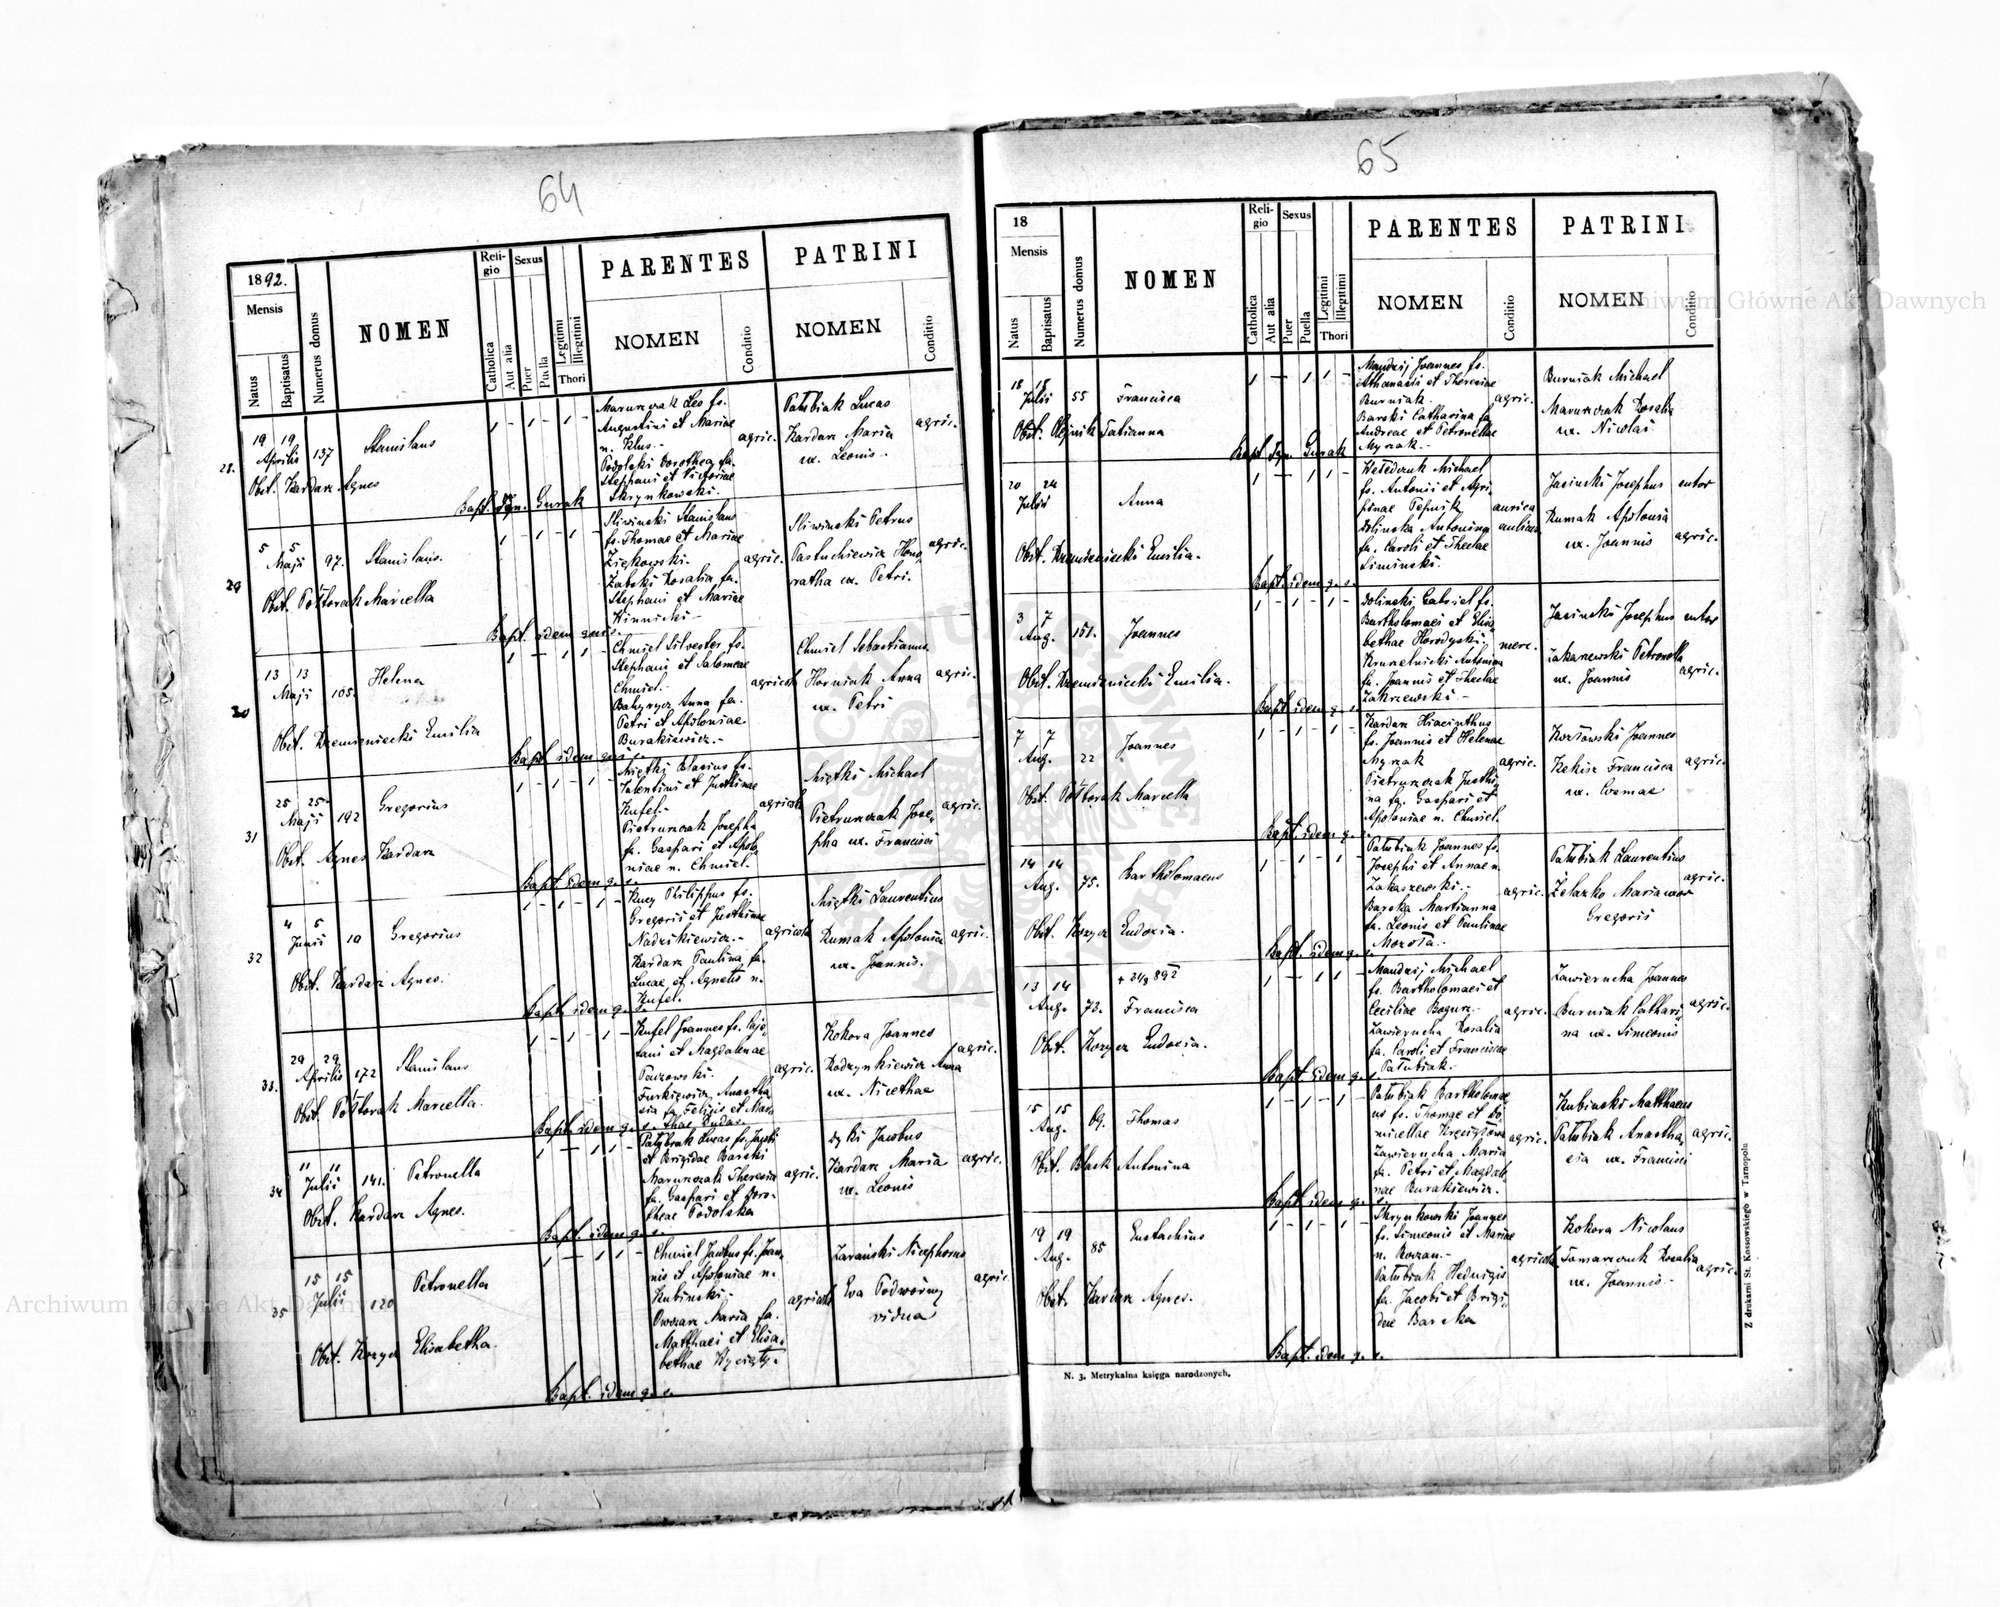 64
1892.
Mensis
Natus
Baptisatus
Numerus domus
NOMEN
Religio
Catholica
Aut alia
Sexus
Puer
Puella
Legitimi
Illegitimi
Thori
PARENTES
NOMEN
Conditio
PATRINI
NOMEN
Conditio
28.
19 19
Aprilis 137 Stanislaus
1 - 1 - 1 -
Obst. Kardasz Agnes
Bapt. Ign. Gurak
Marurczak Leo fs.
Augustini et Mariae
n. Klus.-
Podolski Dorothea fa.
Stephani et Victoriae
Skrynkowski.
agric.
Patubiak Lucas
Kardasz Maria
ux. Leonis.
agric.
29
5 5
Maji 97. Stanislaus.
1 - 1 - 1 -
Obst. Półtorak Marcella
Bapt. idem qui s.
Sliwinski Stanislaus
fs. Thomae et Mariae
Ziętkowski.
Zabski Rosalia fa.
Stephani et Mariae
Winnicki-
agric.
Sliwinski Petrus
Pastuchiewicz Hono
ratha ux. Petri.
agric.
30
13 13
Maji 105. Helena
1 - 1 1 -
Obst. Dzemieniecki Emilia
Bapt. idem qui s.
Chmiel Silvester fs.
Stephani et Salomeae
Chmiel.-
Anna fa.
Petri et Apoloniae
Burakiewicz.-
agricola
Chmiel Sebastianus
Horniak Anna
ux. Petri
agric.
31
25 25
Maji 192 Gregorius
1 - 1 - 1 -
Obst. Agnes Kardasz
Bapt. idem q. s.
Miętki Blasius fs.
Valentini et Justinae
Kufel.-
Pietruszczak Josepha
fa. Gaspari et Apolo
niae n. Chmiel.
agricola
Miętki Michael
Pietruszczak Jose
pha ux. Francisci
agric.
32
4 5
Junii 10 Gregorius
1 - 1 - 1 -
Obst. Kardasz Agnes.
Bapt. idem q. s.
Kucy Philippus fs.
Gregorii et Justinae
Nadzikiewicz.-
Kardasz Paulina fa.
Lucae et Agnetis n.
Kufel.
agricola
Miętki Laurentius
Rumak Apolonia
ux. Joannis.
agric.
33.
29 29
Aprilis 172 Stanislaus
1 - 1 - 1 -
Obst. Półtorak Marcella.
Bapt. idem q. s.
Kufel Joannes fs. Caje
tani et Magdalenae
Furkiewicz Anastha
sia fa. Felicis et Mar
thae Dudas.
agric.
Kokora Joannes
Rodzynkiewicz Anna
ux. Nicethae
agric.
34
11 11
Julii 141. Petronella
1 - 1 1 -
Obst. Kardasz Agnes.
Bapt. idem q. s.
Patubiak Lucas fs. Jacobi
et Brigidae Barski
Marurczak Theresia
fa. Gaspari et Doro
theae Podolska
agric.
Jacobus
Kardasz Maria
ux. Leonis
agric.
35
15 15
Julii 120 Petronella
1 - 1 1 -
Obst. Korzycz Elisabetha.
Bapt. idem q. s.
Chmiel Jacobus fs. Joan
nis et Apoloniae n.
Kubinski.-
Owszar Maria fa.
Matthaei et Elisa
bethae
agricola
Zaranski Nicephorus
Eva Podworny
vidua
agric.
65
18
Mensis
Natus
Baptisatus
Numerus domus
NOMEN
Religio
Catholica
Aut alia
Sexus
Puer
Puella
Legitimi
Illegitimi
Thori
PARENTES
NOMEN
Conditio
PATRINI
NOMEN
Conditio
18 18
Julii 55 Francisca
1 - 1 1 -
Obst. Olejnik Tatianna
Bapt. Ign. Gurak
Mandzij Joannes fs.
Athanasii et Theresiae
Burniak.
Barski Catharina fa.
Andreae et Petronellae
Myszak.-
agric.
Burniak Michael
Marurczak Rosalia
ux. Nicolai
20 24
Julii Anna
1 - 1 1 -
Obst. Dzemieniecki Emilia.
Bapt. idem q. s.
Michael
fs. Antonii et Agri
pinae
Dolinska Antonina
fa. Caroli et Theclae
Siminski.
Jasinski Josephus
Rumak Apolonia
ux. Joannis
agric.
3 7
Aug. 151. Joannes
1 - 1 - 1 -
Obst. Dzemieniecki Emilia.
Bapt. idem q. s.
Dolinski Gabriel fs.
Bartholomaei et Elisa
bethae Horodyski.
Kruzelnicki Antonina
fa. Joannis et Theclae
Zakrzewski.-
merc.
Jasinski Josephus
Zakaszewski Petronella
ux. Joannis
agric.
7 7
Aug. 22 Joannes
1 - 1 - 1 -
Obst. Półtorak Marcella
Bapt. idem q. s.
Kardasz Hiacinthus
fs. Joannis et Helenae
Myszak
Pietruszczak Justi
na fa. Gaspari et
Apoloniae n. Chmiel.
agric.
Kozłowski Joannes
Kekisz Francisca
ux. Cosmae
agric.
14 14
Aug. 75. Bartholomaeus
1 - 1 - 1 -
Obst. Korzycz Eudoxia.
Bapt. idem q. s.
Patubiak Joannes fs.
Josephi et Annae n.
Zakaszewski.-
Barska Martianna
fa. Leonis et Paulinae
Morozła.-
agric.
Patubiak Laurentius
Żelazko Maria uxor
Gregorii
agric.
+ 24/8 892
13 14
Aug. 73. Francisca
1 - 1 1 -
Obst. Korzycz Eudoxia.
Bapt. idem q. s.
Mandzij Michael
fs. Bartholomaei et
Ceciliae Bogusz.
Zawierucha Rosalia
fa. Caroli et Franciscae
Patubiak.-
agric.
Zawierucha Joannes
Burniak Cathari
na ux. Simeonis
agric.
15 15
Aug. 69. Thomas
1 - 1 - 1 -
Obst. Blask Antonina
Bapt. idem q. s.
Patubiak Bartholomae
us fs. Thomae et Do
micellae
Zawierucha Maria
fa. Petri et Magdale
nae Burakiewicz.
agric.
Kubinski Matthaeus
Patubiak Anastha
sia ux. Francisci
agric.
19 19
Aug. 85 Eustachius
1 - 1 - 1 -
Obst. Kardasz Agnes.
Bapt. idem q. s.
Skrynkowski Joannes
fs. Simeonis et Mariae
n. Roszan.-
Patubiak Hedvigis
fa. Jacobi et Brigi
dae Barska
agricola
Kokora Nicolaus
Tomaszczuk Rosalia
ux. Joannis-
agric.
N. 3. Metrykalna księga narodzonych.
Z drukarni St. Kossowskiego w Tarnopolu
Archiwum Główne Akt Dawnych
Archiwum Główne Akt Dawnych